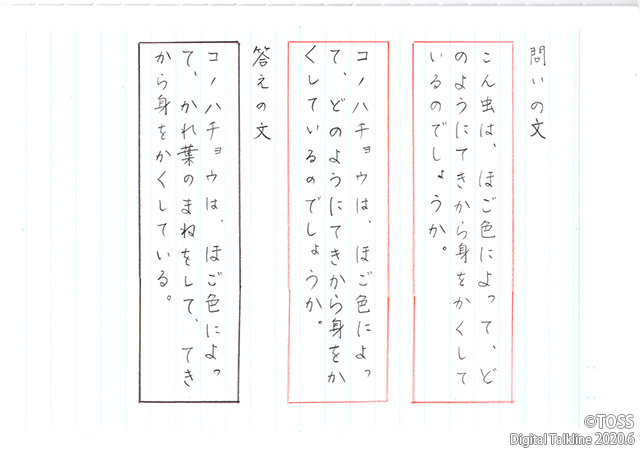 問いの文
こん虫は、ほご色によって、ど
のようにてきから身をかくして
いるのでしょうか。
コノハチョウは、ほご色によっ
て、どのようにてきから身をか
くしているのでしょうか。
答えの文
コノハチョウは、ほご色によっ
て、かれ葉のまねをして、てき
から身をかくしている。
©TOSS
Digital Talkline 2020.6